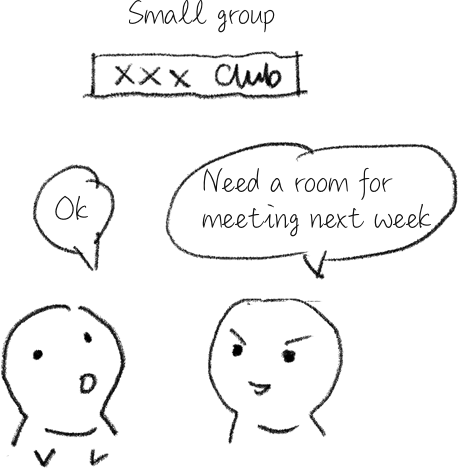 Small group
xxx Club
Ok
Need a room for
meeting next week